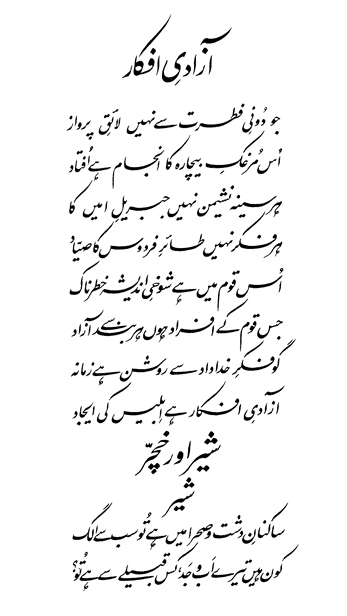 آزادیِ افکار
جو دُونیِ فطرت سے نہیں لائقِ پرواز
اُس مُرغکِ بیچارہ کا انجام ہے اُفتاد
ہر سینہ نشیمن نہیں جبریلِ امیں کا
ہر فکر نہیں طائرِ فردوس کا صیّاد
اُس قوم میں ہے شوخیِ اندیشہ خطرناک
جس قوم کے افراد ہوں ہر بند سے آزاد
گو فکرِ خداداد سے روشن ہے زمانہ
آزادیِ افکار ہے اِبلیس کی ایجاد
شیر اور خچّر
شیر
ساکنانِ دشت و صحرا میں ہے تُو سب سے الگ
کون ہیں تیرے اَب و جَد، کس قبیلے سے ہے تُو؟